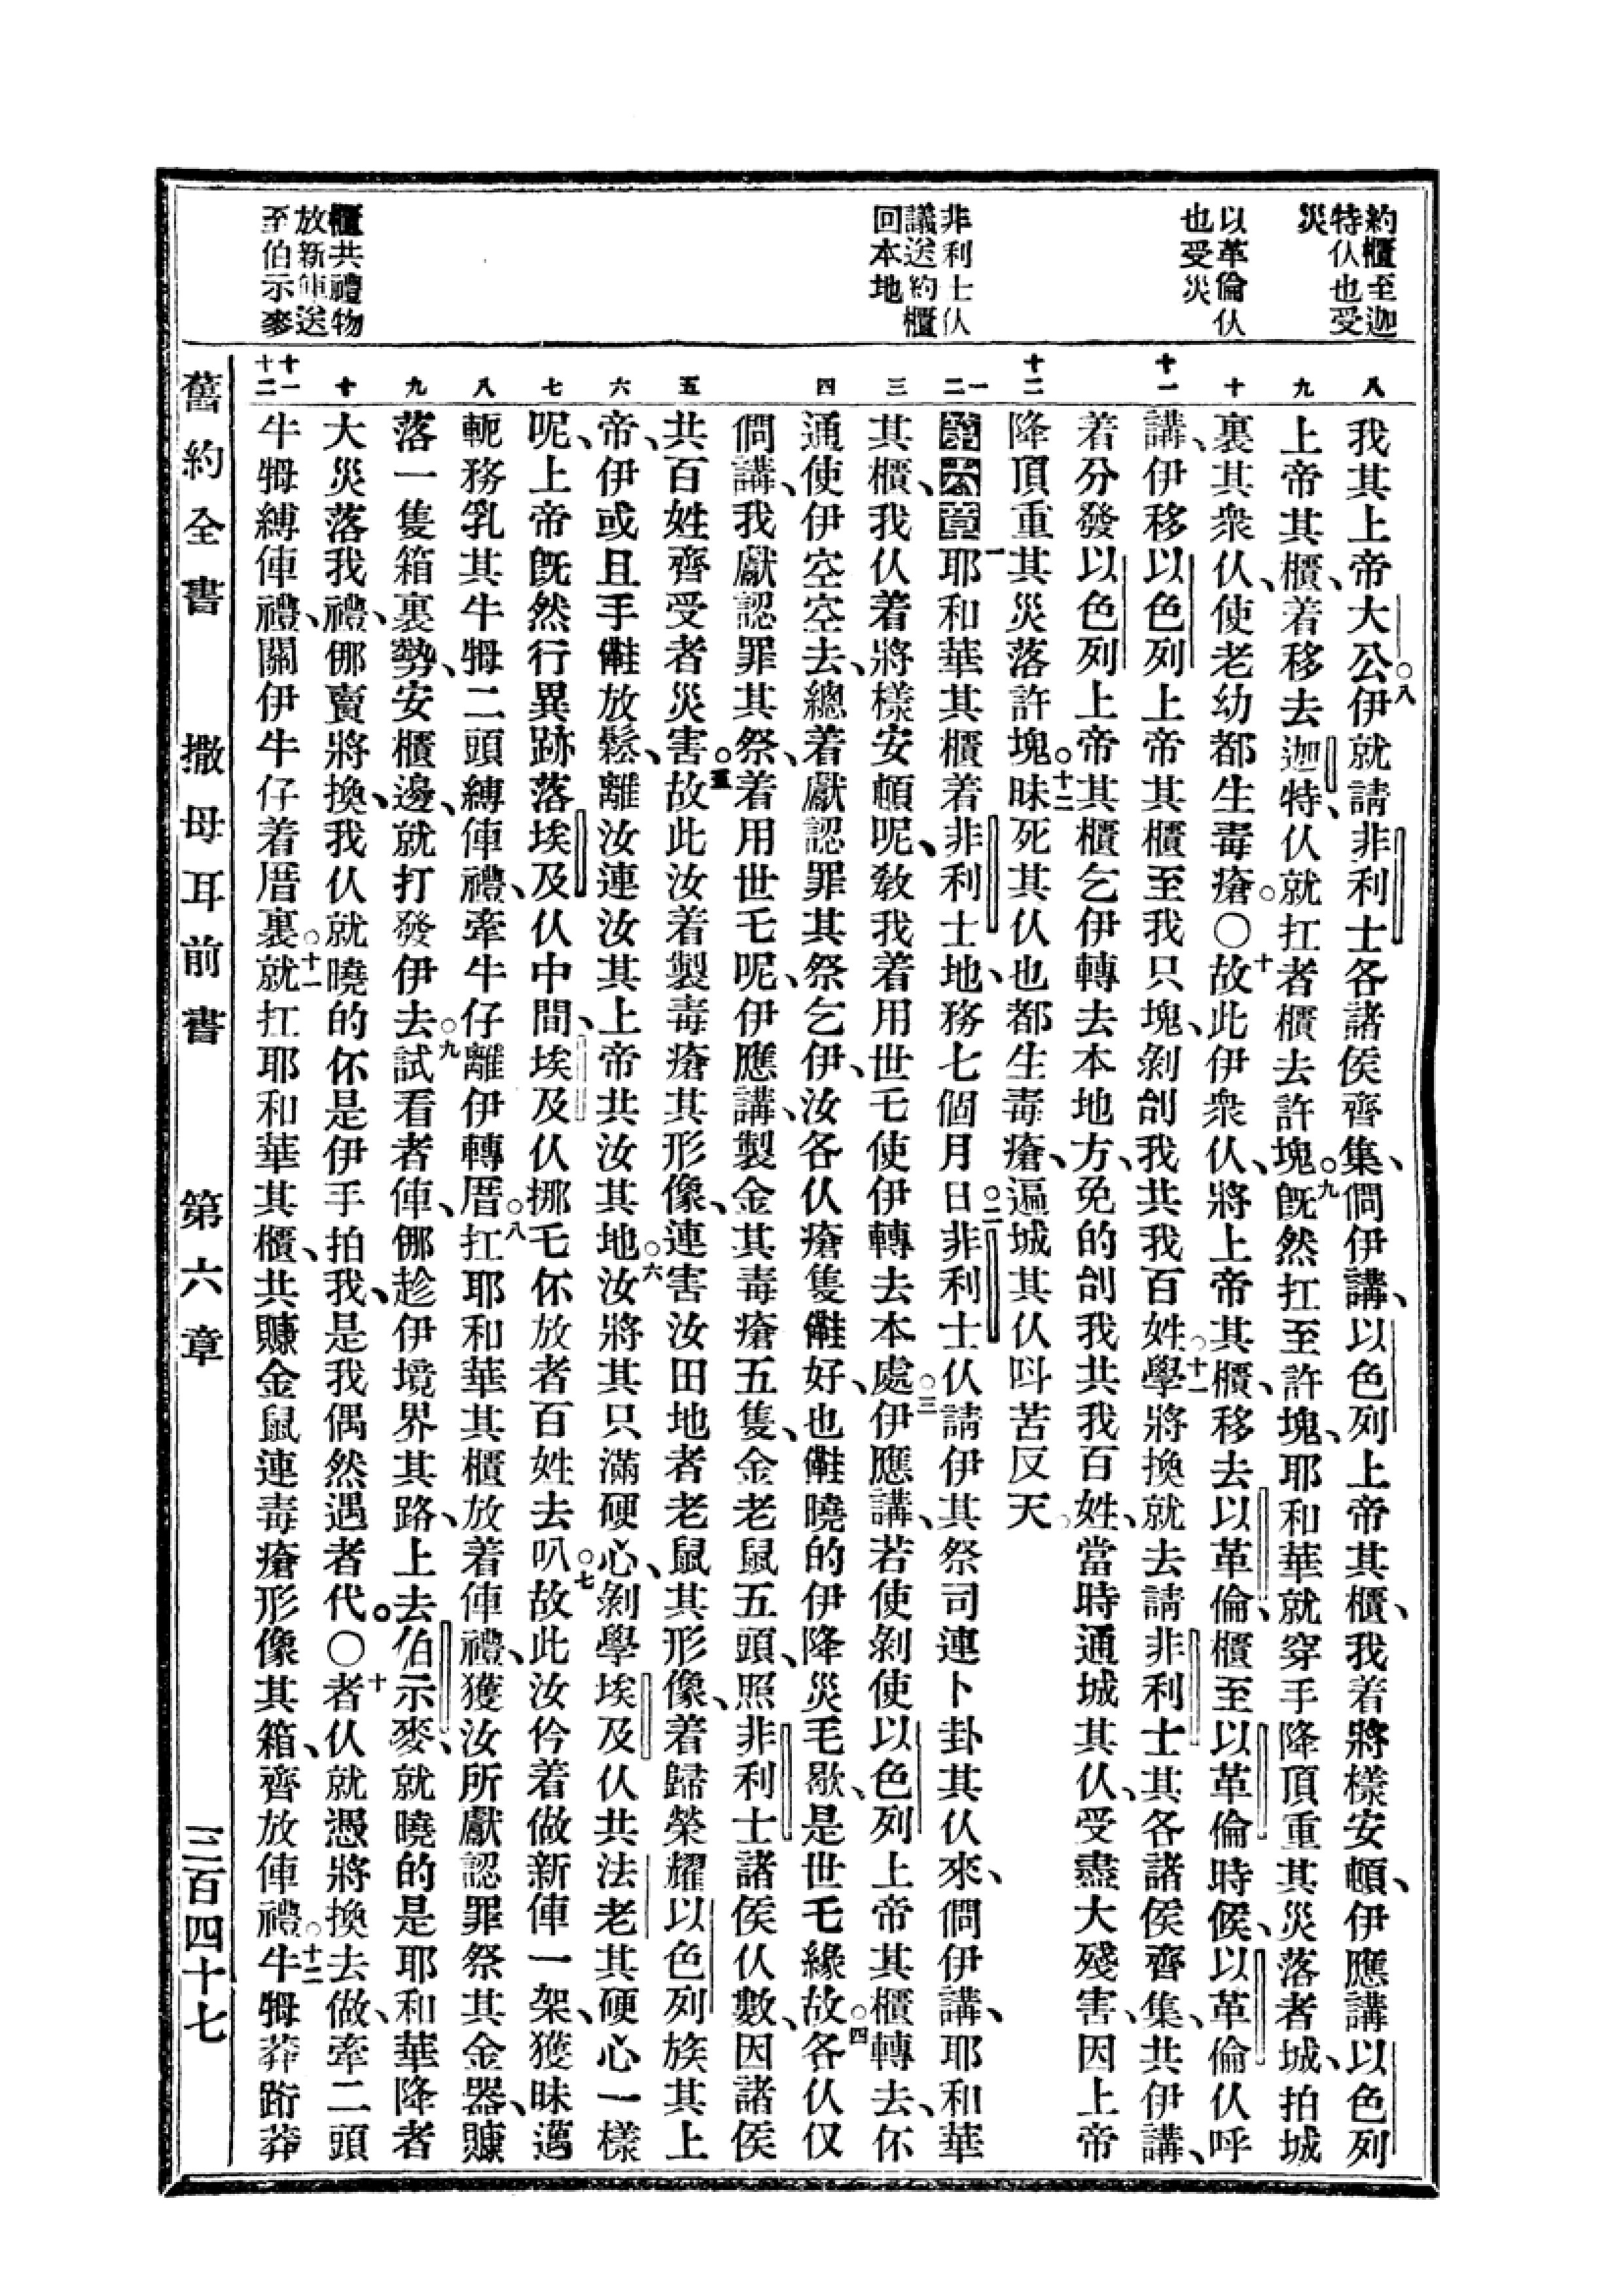 約櫃至迦
特仈也受
災
以革倫仈
也受災
非利士仈
議送約櫃
回本地
櫃共禮物
放新俥送
至伯示麥
八
我其上帝大公○八伊就請非利士各諸侯齊集、問伊講、以色列上帝其櫃、我着將樣安頓、伊應講以色列
九
上帝其櫃、着移去迦特、仈就扛者櫃去許塊。九旣然扛至許塊、耶和華就穿手降頂重其災落者城、拍城
十
裏其衆仈、使老幼都生毒瘡。〇十故此伊衆仈、將上帝其櫃、移去以革倫、櫃至以革倫時候、以革倫仈呼
十一
講、伊移以色列上帝其櫃至我只塊、剝刣我共我百姓○十一學將換就去請非利士其各諸侯齊集、共伊講、
着分發以色列上帝其櫃乞伊轉去本地方、免的刣我共我百姓、當時通城其仈、受盡大殘害、因上帝
十二
降頂重其災落許塊。十二昧死其仈也都生毒瘡、遍城其仈呌苦反天。
一 二
第六章一耶和華其櫃着非利士地、務七個月日○二非利士仈請伊其祭司連卜卦其仈來、問伊講、耶和華
三
其櫃、我仈着將樣安頓呢、教我着用世乇使伊轉去本處○三伊應講、若使剝使以色列上帝其櫃轉去、伓
四
通使伊空空去、總着獻認罪其祭乞伊、汝各仈瘡隻㑽好、也㑽曉的伊降災毛歇、是世乇緣故○四各仈仅
問講、我獻認罪其祭、着用世乇呢、伊應講、製金其毒瘡五隻、金老鼠五頭、照非利士諸侯仈數、因諸侯
五
共百姓齊受者災害。五故此汝着製毒瘡其形像、連害汝田地者老鼠其形像、着歸榮耀以色列族其上
六
帝、伊或且手㑽放鬆、離汝連汝其上帝共汝其地○六汝將其只滿硬心、剝學埃及仈共法老其硬心一樣
七
呢、上帝旣然行異跡落埃及仈中間、埃及仈挪乇伓放者百姓去叭○七故此汝仱着做新俥一架、獲昧邁
八
軛務乳其牛㹀二頭縛俥禮、牽牛仔離伊轉厝○八扛耶和華其櫃放着俥禮、獲汝所獻認罪祭其金器、賺
九
落一隻箱裏勢、安櫃邊、就打發伊去○九試看者俥、㑚趁伊境界其路、上去伯示麥、就曉的是耶和華降者
十
大災落我禮、㑚賣將換、我仈就曉的伓是伊手拍我、是我偶然遇者代。〇十者仈就憑將換去做、牽二頭
十一 十二
牛㹀縛俥禮、關伊牛仔着厝裏○十一就扛耶和華其櫃、共賺金鼠連毒瘡形像其箱、齊放俥禮○十二牛㹀莽跲莽
舊約全書 撒母耳前書 第六章 三百四十七